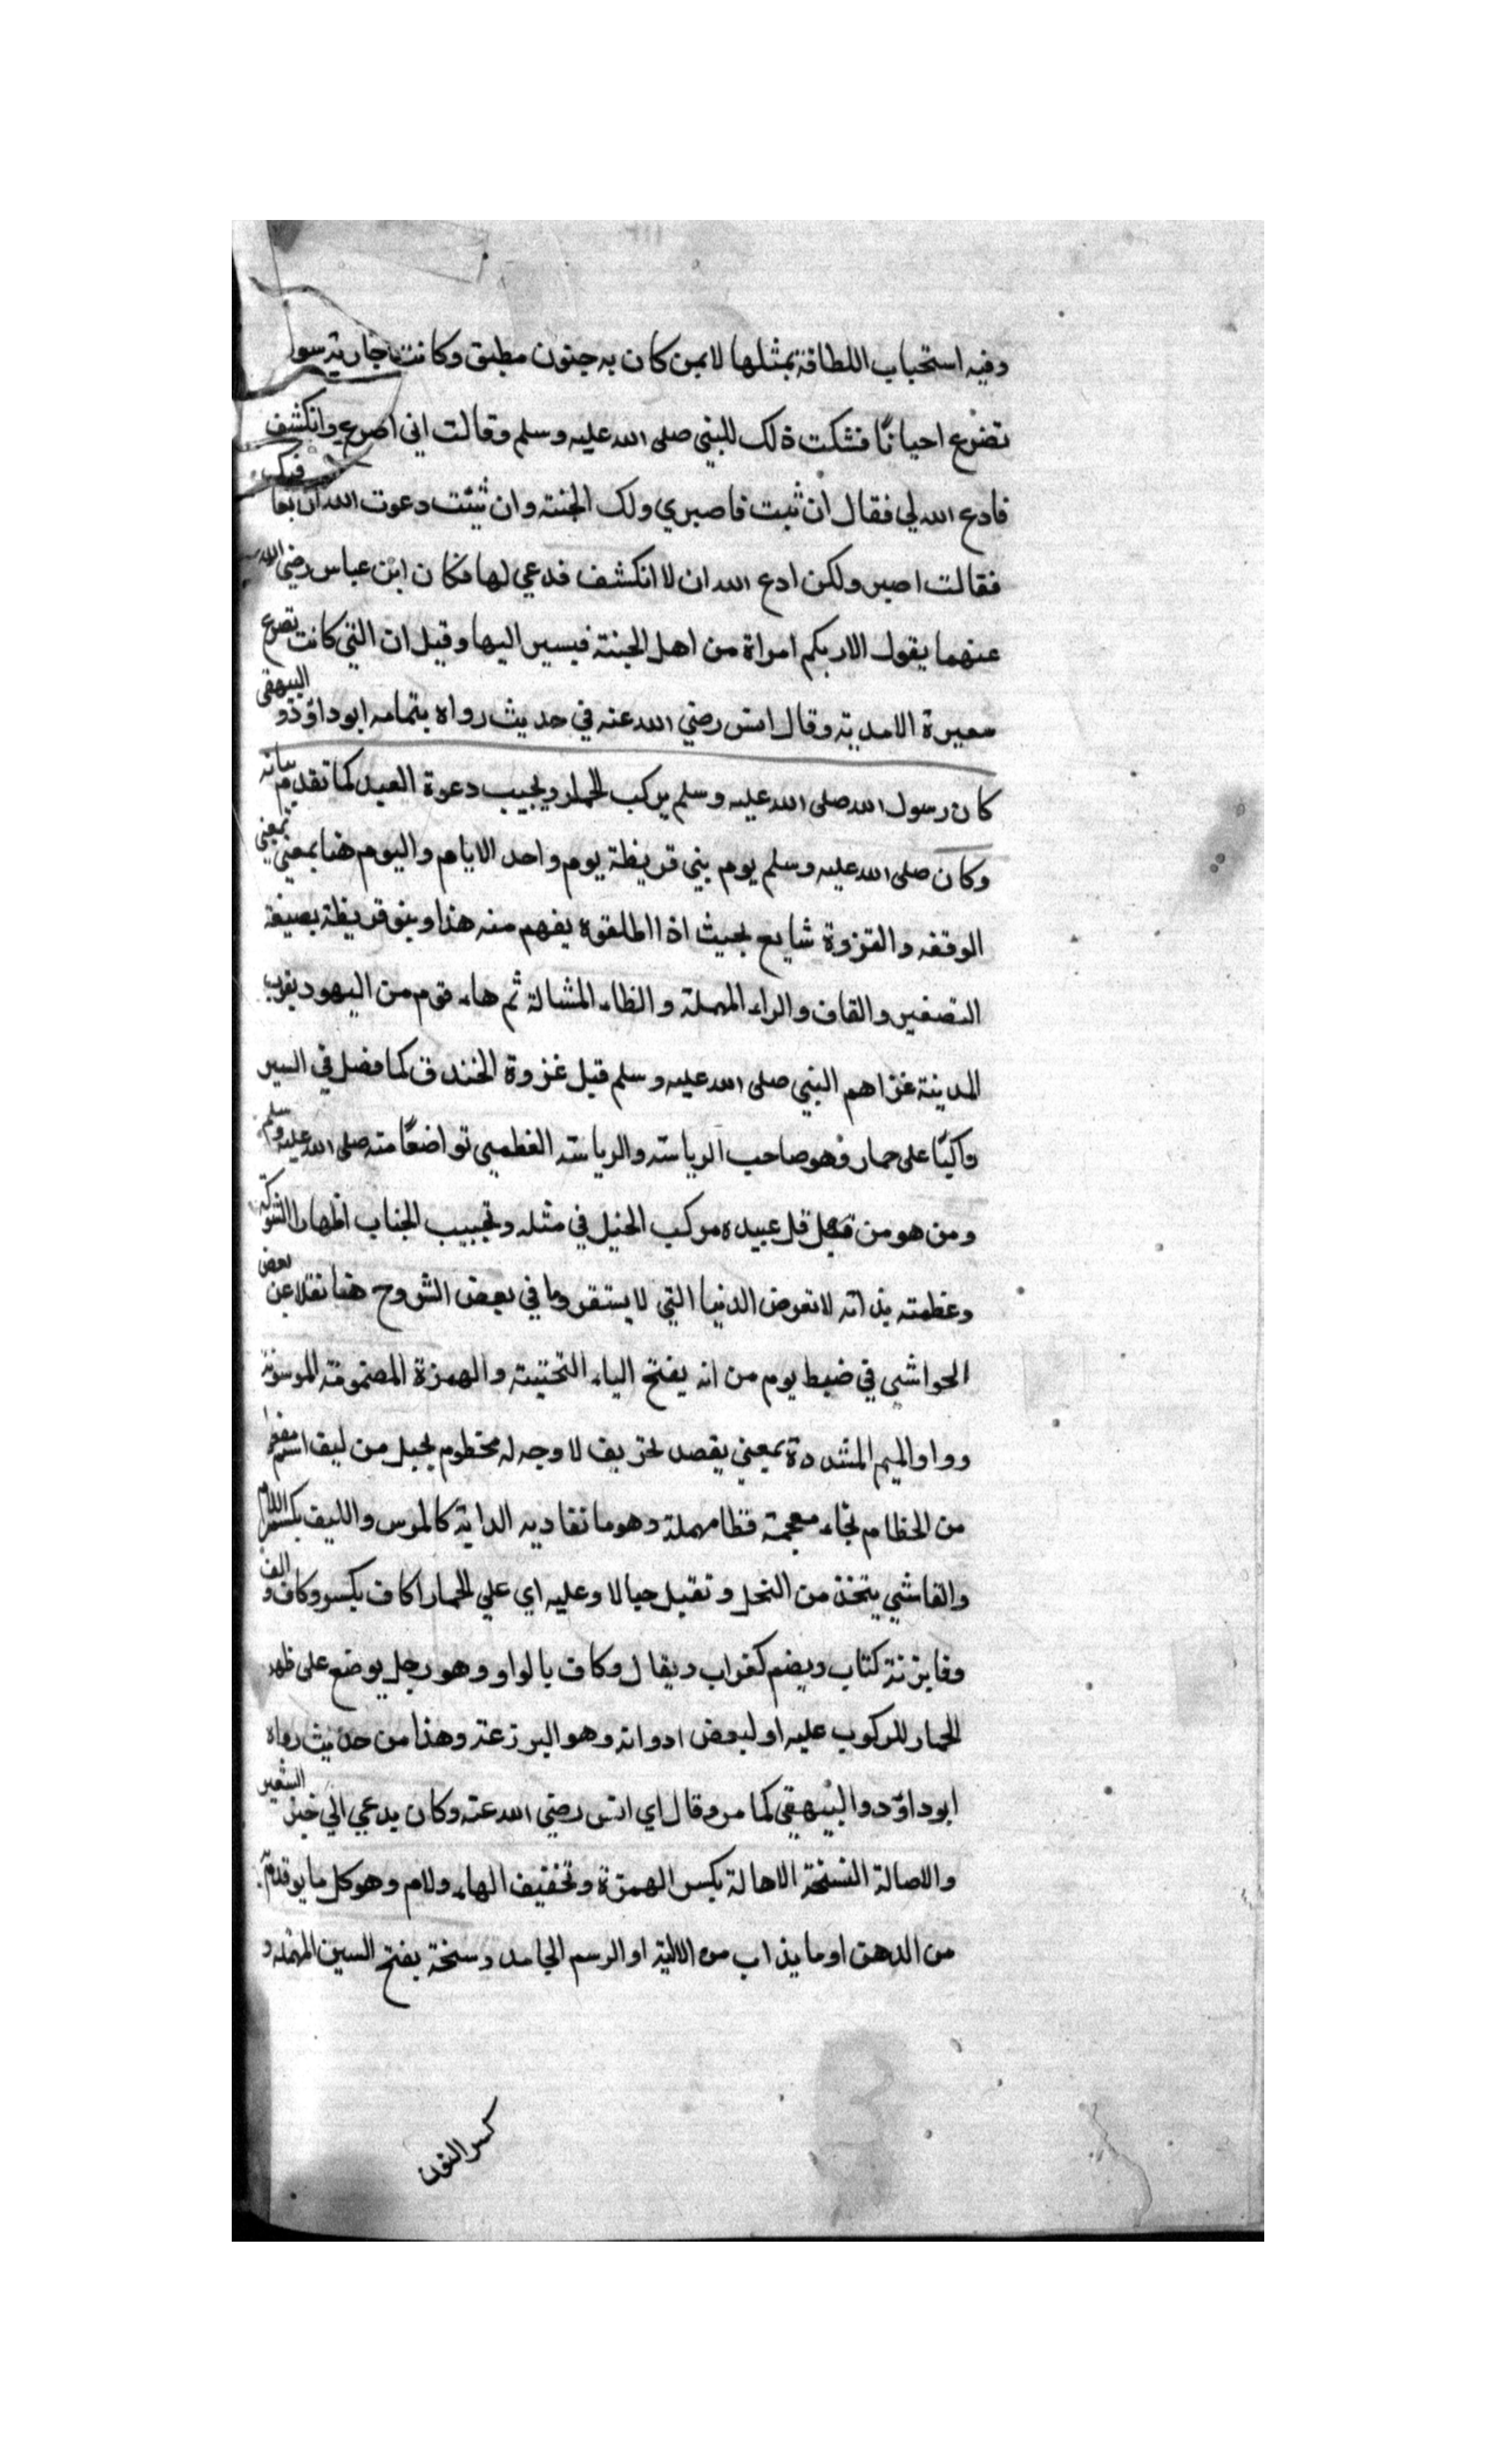 وفيه استحباب اللطافة بمثلها لا بمن كان به جنون مطبق وكانت جارية سوا
تضرع احيانًا فشكت ذلك للبني صلى الله عليه وسلم وقالت اني اصرع وانكشف
فادع الله لي فقال ان ثبت فاصبري ولك الجنته وان شئت دعوت الله ان يعا فيك
فقالت اصبر ولكن ادع الله ان لا انكشف فدعي لها فكان ابن عباس رضي الله
عنهما يقول الا ربكم امراة من اهل الجنته فيسير اليها وقيل ان التي كانت تصرع
سعيرة الاسدية وقال انس رضي الله عنه في حديث رواه بتمامه ابو داؤد و البيهقي
كان رسول الله صلى الله عليه وسلم يركب الحمار ويجيب دعوة العبد كما تقدم بيانه
وكان صلى الله عليه وسلم يوم بني قريظة يوم واحد الايام واليوم هنا بمعني
الوقفه والقزوة شايع بحيث اذا اطلقوه يفهم منه هذا وبنو قريظة بصيغة
التصغير والقاف والراء المهملة والظاء المشالة ثم هاء قوم من اليهود بقرب
المدينة غزاهم البني صلى الله عليه وسلم قبل غزوة الخندق كما فصل في السير
واكبًا على حمار وهو صاحب الرياسته والرياسته العظمي تواضعًا منه صلى الله عليه وسلم
ومن هو من قبل قل عبيده مركب الخيل في مثله وتجبيب الجناب اظهارا الشوكة
وعظمته بذاته لا تعرض الدنيا التي لا يستقر وما في بعض الشروح هنا نقلا عن بعض
الحواشي في ضبط يوم من انه يفتح الياء التحتيته والهمزة المضمومة الموسومة
وواو الميم المشددة بمعني يقصد تحريف لا وجه له مخطوم بحبل من ليف اسم مفعول
من الخطام بخاء معجمة فظا مهملة وهو ما تقاد به الدابة كالمرس والليف بكسر اللام
والقاشي يتخذ من النخل و تقبل حبالا وعليه اي علي الحمار اكاف بكسر وكاف و الف
وفا بزنة كتاب ويضم كغراب ويقال وكاف بالواو وهو رجل يوضع على ظهر
الحمار للركوب عليه او لبعض ادواته وهو البرزعة وهذا من حديث رواه
ابو داؤد والبيهقي كما مر وقال اي انس رضي الله عنه وكان يدعي الي خبز الشعير
والاصالة السنخة الاهالة بكسر الهمزة وتخفيف الهاء ولام وهو كل ما يوقدم به
من الدهن او ما يذاب من الالية او الرسم الجامد وسنخة بفتح السين المهمله و
كسر النون